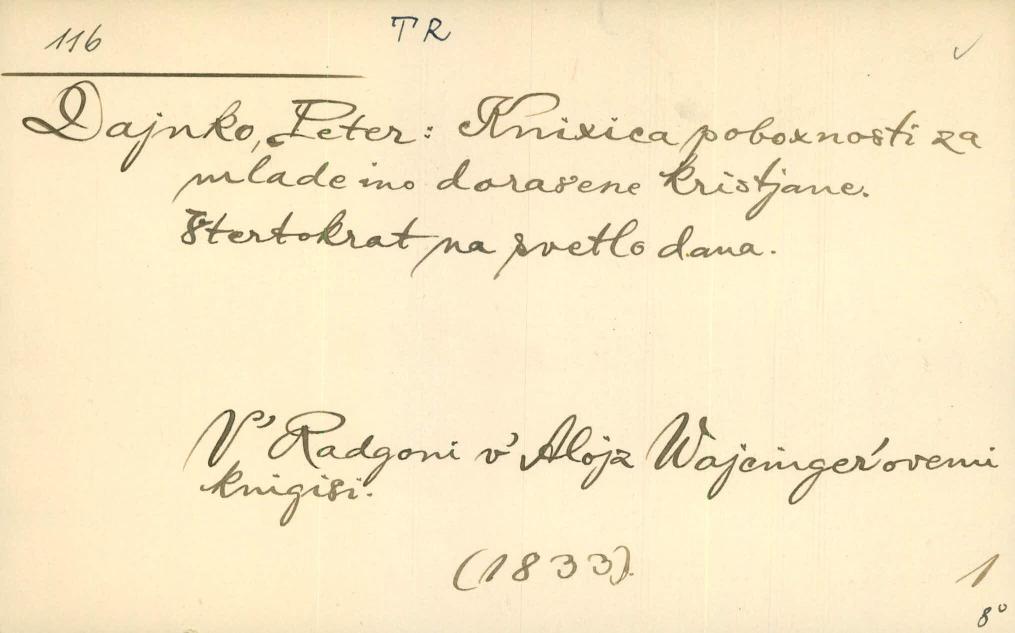 116
TR
Dajnko, Peter: Knixica poboxnosti za
mlade ino dorasene kristjane.
Štertokrat na svetlo dana.
V' Radgoni v' Alojz Wajcinger'ovemi
knigisi.
(1833).
1
8°